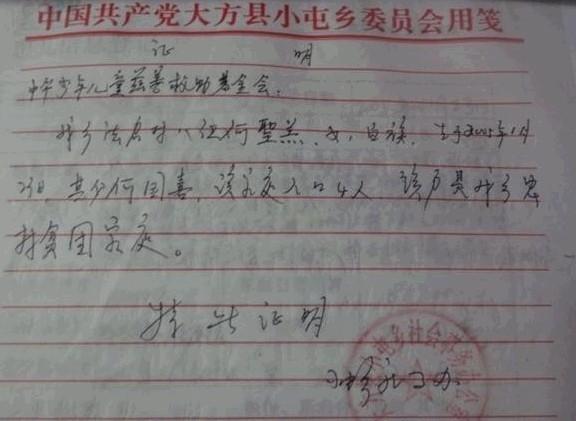 中国共产党大方县小屯乡委员会用笺
证 明
中华少年儿童慈善救助基金会:
我乡法启村八组何圣羔、女、白族、生于2005年1月
2日,其父何国喜,该家庭人口4人 该户是我乡农
村贫困家庭。
特此证明
小屯乡社事办
屯乡社会事务办